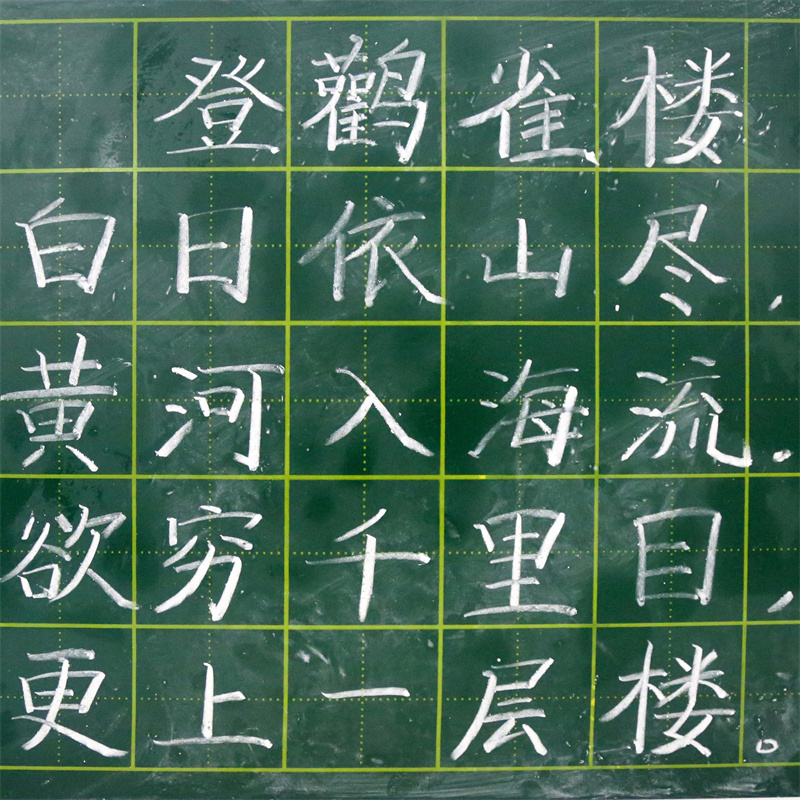 登鸛雀楼
白日依山尽,
黄河入海流.
欲穷千里目,
更上一层楼。